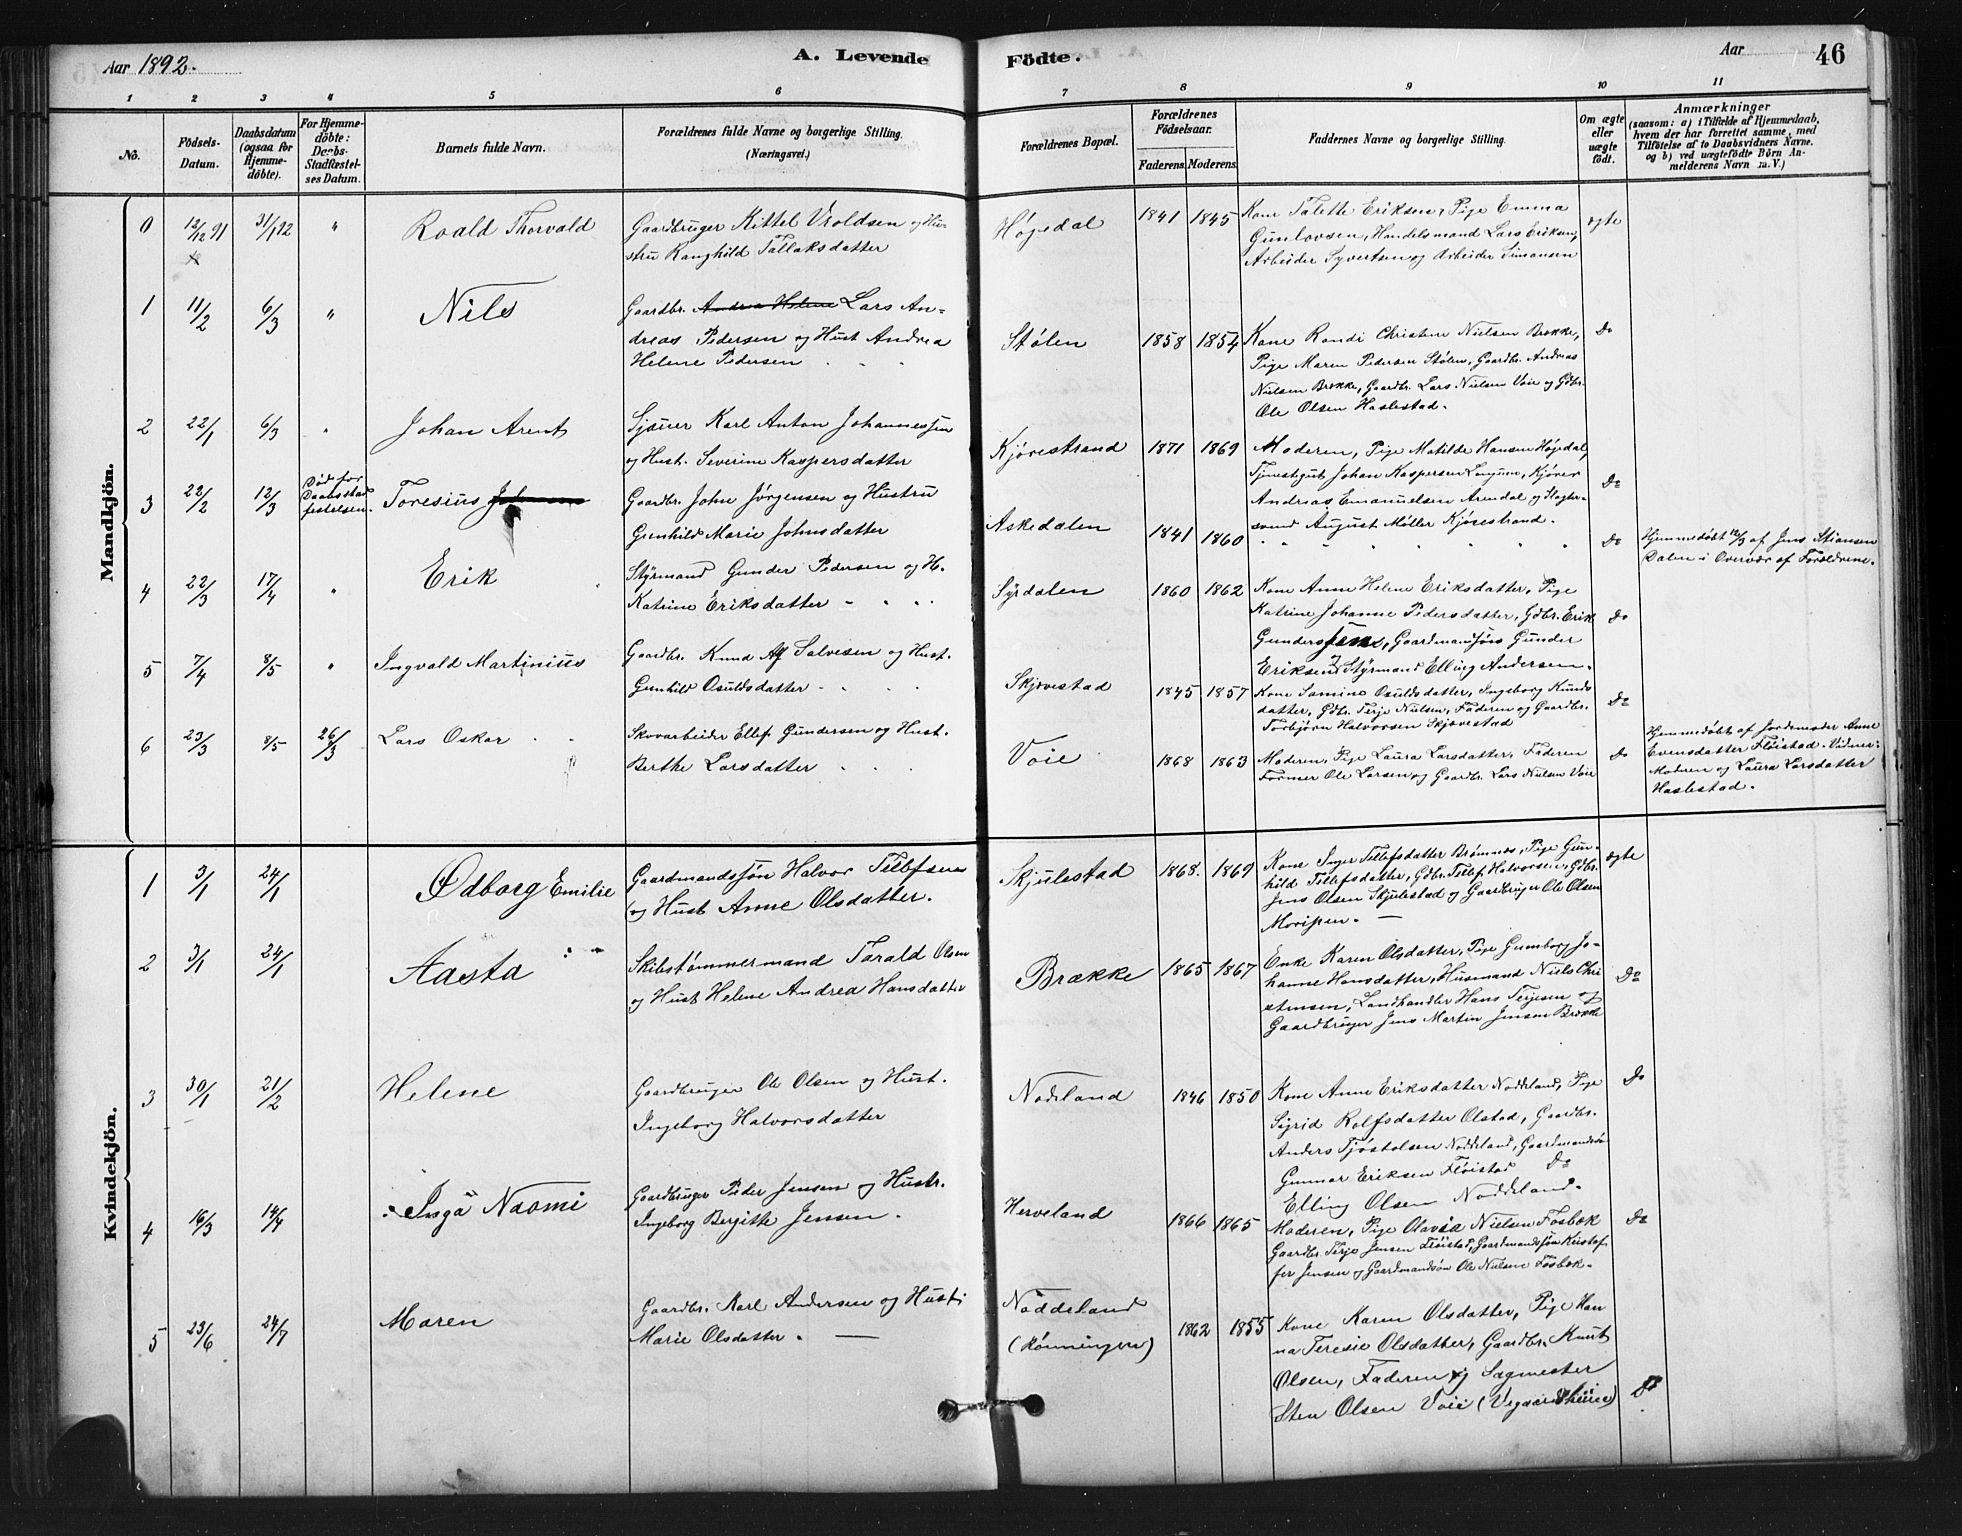 Aar 1892.
A. Levende Födte.
Aar
46
1 2 3 4 5 6 7 8 9 10 11
No.
Födsels-Datum.
Daabsdatum (ogsaa for Hjemme-döbte).
For Hjemme-döbte: Daabs-Stadfæstel-ses Datum.
Barnets fulde Navn.
Forældrenes fulde Navne og borgerlige Stilling.
(Næringsvei.)
Forældrenes Bopæl.
Forældrenes Födselsaar.
Faderens. Moderens.
Faddernes Navne og borgerlige Stilling.
Om ægte eller uægte födt.
Anmærkninger
(saasom: a) i Tilfælde af Hjemmedaab, hvem der har forrettet samme, med Tilföielse af to Daabsvidners Navne, og b) ved uægtefödte Börn An-melderens Navn m. V.)
Mandkjön.
0 12/12 91 31/1 92 " Roald Thorvald
Gaardbruger Kittel Vroldsen og Hu-
stru Ranghild Tallaksdatter
Høgedal 1841 1845
Kone Talette Eriksen, Pige Emma
Gunlovsen, Handelsmand Lars Eriksen,
Arbeider Syvertsen og Arbeider Simonsen
ægte
1 11/2 6/3 " Nils
Gaardbr. Andrea Helene Lars An-
dreas Pedersen og Hust Andrea
Helene Pedersen
Stølen 1858 1854
Kone Randi Christine Nielsen Brække,
Pige Maren Pedersen Stølen, Gaardbr. Andreas
Nielsen Brække, Gaardbr. Lars Nielsen Voie og Gdbr.
Ole Olsen Haslestad.
Do
2 22/1 6/3 " Johan Arent
Sjøuer Karl Anton Johannessen
og Hust. Severine Kaspersdatter
Kjørestrand 1871 1869
Moderen, Pige Matilde Hansen Høgedal,
Tjenestegut Johan Kaspersen Longum, Kjører
Andreas Emanuelsen Arendal og Slagter-
svend August Møller Kjørestrand.
Do
3 22/2 12/3 Død før Daabsstad-festelsen. Toresius Johnsen
Gaardbr. John Jørgensen og Hustru
Gunhild Marie Johnsdatter
Askedalen 1841 1860
" " " " " " "
Do
Hjemmedøbt 12/3 af Jens Stiansen
Dalen i Overvær af Forældrene.
4 22/3 17/4 " Erik
Styrmand Gunder Pedersen og H.
Katrine Eriksdatter
Syrdalen 1860 1862
Kone Anne Helene Eriksdatter, Pige
Katrine Johanne Pedersdatter, Gdbr. Erik
Gundersen, Gaardmandssøn Gunder
Eriksen, Styrmand Elling Andersen.
Do
5 7/4 8/5 " Ingvald Martinius
Gaardbr. Knud Salvesen og Hust.
Gunhild Osuldsdatter
Skjævestad 1845 1857
Kone Samine Osuldsdatter, Ingeborg Knuds
datter, Gdbr. Terje Nielsen, Faderen og Gaardbr.
Torbjørn Halvorsen Skjævestad
Do
6 23/3 8/5 26/3 Lars Oskar
Skovarbeider Ellef Gundersen og Hust.
Berthe Larsdatter
Voie 1868 1863
Moderen, Pige Laura Larsdatter, Faderen
Former Ole Larsen og Gaardbr. Lars Nielsen Voie
Do
Hjemmedøbt af Jordemoder Anne
Evensdatter Fløistad. Vidner:
Moderen og Laura Larsdatter
Haslestad.
Kvindekjön.
1 3/1 24/1 Odborg Emilie
Gaardmandssøn Halvor Tellefsen
og Hust Anne Olsdatter.
Skjulestad 1868. 1869
Kone Inger Tellefsdatter Brømnes, Pige Gun-
hild Tellefsdatter, Gdbr. Tellef Halvorsen, Gdbr.
Jens Olsen Skjulestad og Gaardbruger Ole Olsen
ægte
2 3/1 24/1 Aasta
Skibstømmermand Tarald Olsen
og Hust Helene Andrea Hansdatter
Brække 1865 1867
Enke Karen Olsdatter, Pige Gunborg Jo-
hanne Hansdatter, Husmand Niels Chri
stensen, Landhandler Hans Terjesen og
Gaardbruger Jens Martin Jensen Brække
Do
3 30/1 21/2 Helene
Gaardbruger Ole Olsen og Hust.
Ingeborg Halvorsdatter
Nodeland 1846 1850
Kone Anne Eriksdatter Noddeland, Pige
Sigrid Rolfsdatter Olstad, Gaardbr.
Anders Tjøstolsen Noddeland, Gaardmandssøn
Gunnar Eriksen Fløistad Do
Elling Olsen Noddeland.
Do
4 16/3 14/4 Inga Naomi
Gaardbruger Peder Jensen og Hustr.
Ingeborg Bergitte Jensen.
Herveland 1866 1865
Moderen, Pige Olavia Nielsen Fosbæk
Gaardbr. Terje Jensen Fløistad, Gaardmandssøn Kristof-
fer Jensen og Gaardmandsøn Ole Nielsen Fosbæk.
Do
5 23/6 24/7 Maren
Gaardbr. Karl Andersen og Hust
Marie Olsdatter.
Noddeland
(Rønningen) 1862 1855
Kone Karen Olsdatter, Pige Han
na Teresie Olsdatter, Gaardbr. Knut
Olsen, Faderen og Sagmester
Sten Olsen Voie (Vegaardsheien)
Do